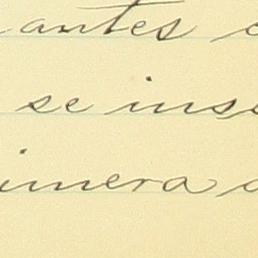 antes
se inse
imera